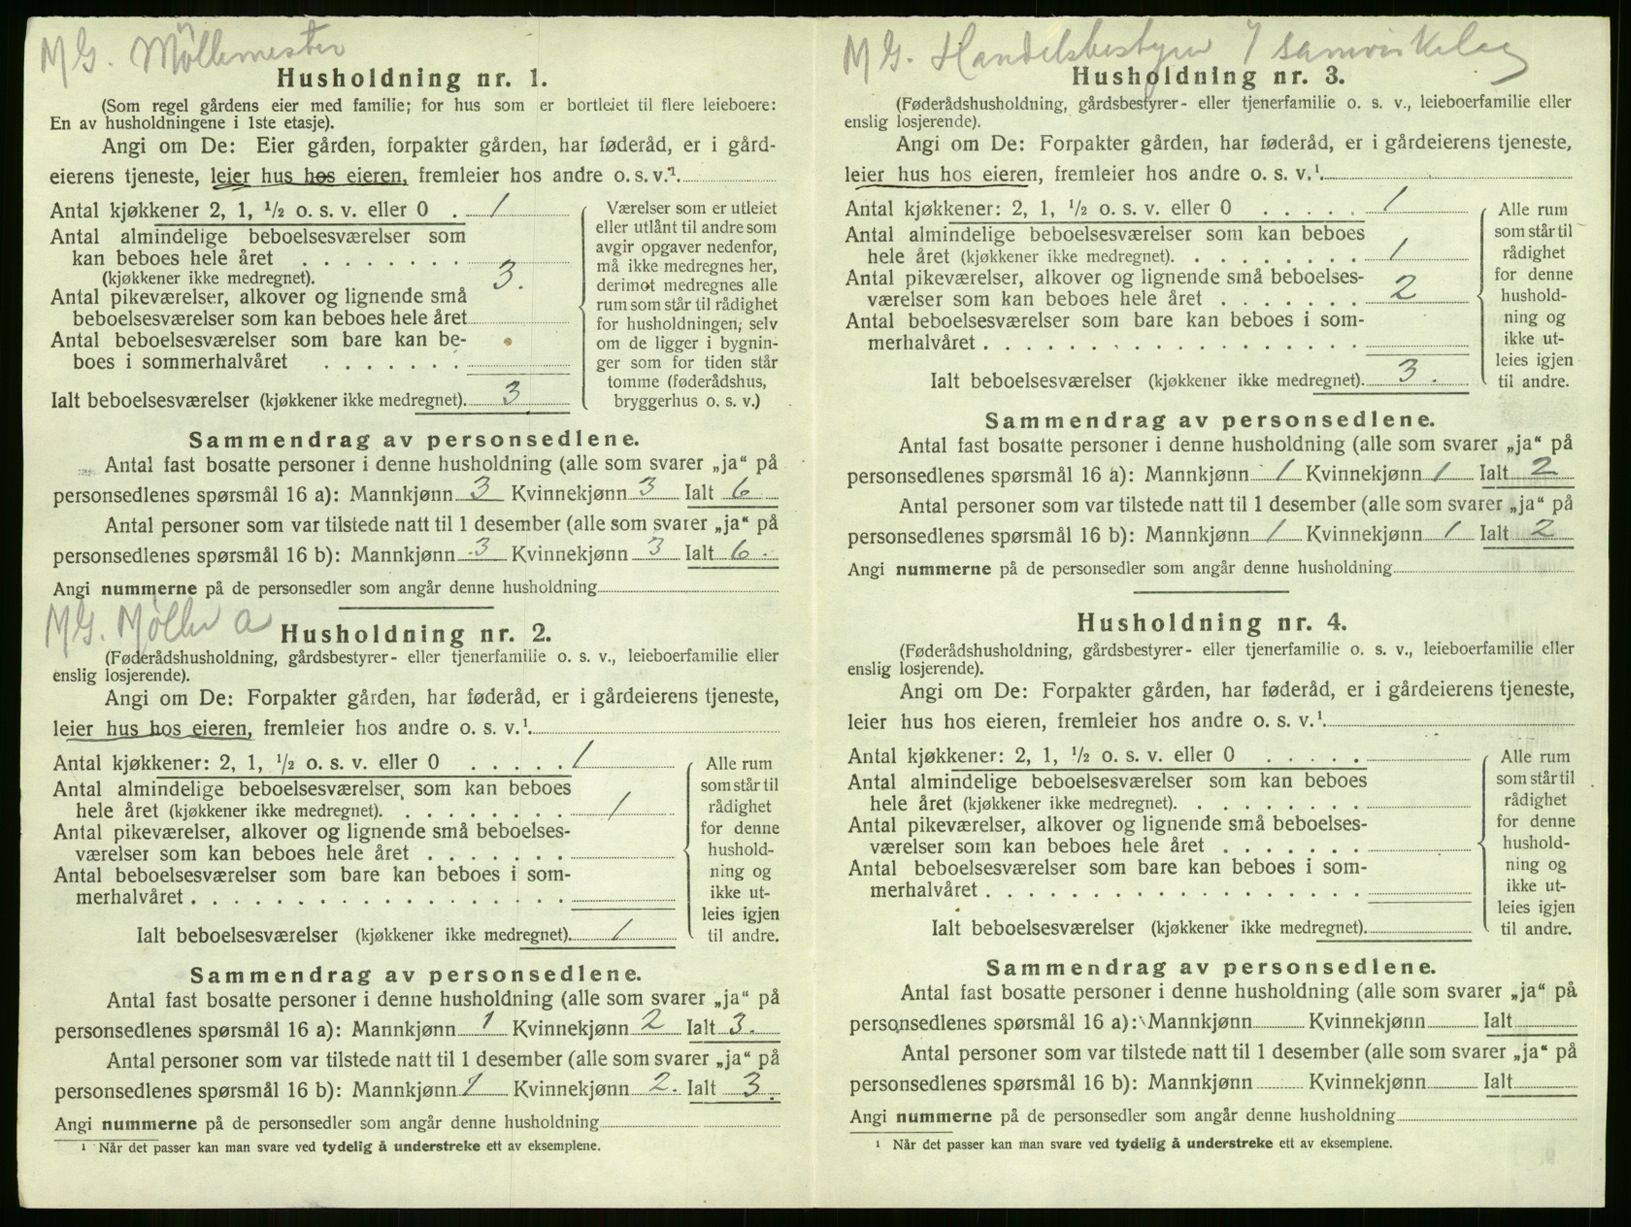 M G. Möllemester
Husholdning nr. 1.
(Som regel gårdens eier med familie; for hus som er bortleiet til flere leieboere:
En av husholdningene i 1ste etasje).
Angi om De: Eier gården, forpakter gården, har føderåd, er i gård-
eierens tjeneste, leier hus hos eieren, fremleier hos andre o. s. v.¹.
Antal kjøkkener 2, 1, ½ o. s. v. eller 0 . 1
Antal almindelige beboelsesværelser som
kan beboes hele året . . . . . . . .
(kjøkkener ikke medregnet). 3.
Antal pikeværelser, alkover og lignende små
beboelsesværelser som kan beboes hele året
Antal beboelsesværelser som bare kan be-
boes i sommerhalvåret . . . . . . .
Ialt beboelsesværelser (kjøkkener ikke medregnet). 3
Værelser som er utleiet
eller utlånt til andre som
avgir opgaver nedenfor,
må ikke medregnes her,
derimot medregnes alle
rum som står til rådighet
for husholdningen, selv
om de ligger i bygnin-
ger som for tiden står
tomme (føderådshus,
bryggerhus o. s. v.)
Sammendrag av personsedlene.
Antal fast bosatte personer i denne husholdning (alle som svarer „ja“ på
personsedlenes spørsmål 16 a): Mannkjønn 3 Kvinnekjønn 3 Ialt 6
Antal personer som var tilstede natt til 1 desember (alle som svarer „ja“ på
personsedlenes spørsmål 16 b): Mannkjønn 3 Kvinnekjønn 3 Ialt 6.
Angi nummerne på de personsedler som angår denne husholdning
M G. Møller a
Husholdning nr. 2.
(Føderådshusholdning, gårdsbestyrer- eller tjenerfamilie o. s. v., leieboerfamilie eller
enslig losjerende).
Angi om De: Forpakter gården, har føderåd, er i gårdeierens tjeneste,
leier hus hos eieren, fremleier hos andre o. s. v.¹.
Antal kjøkkener: 2, 1, ½ o. s. v. eller 0 . . . . . 1
Antal almindelige beboelsesværelser som kan beboes
hele året (kjøkkener ikke medregnet). . . . . . . . . 1
Antal pikeværelser, alkover og lignende små beboelses-
værelser som kan beboes hele året . . . . . . .
Antal beboelsesværelser som bare kan beboes i som-
merhalvåret . . . . . . . . . . . . . . . . . .
Ialt beboelsesværelser (kjøkkener ikke medregnet). 1
Alle rum
som står til
rådighet
for denne
hushold-
ning og
ikke ut-
leies igjen
til andre.
Sammendrag av personsedlene.
Antal fast bosatte personer i denne husholdning (alle som svarer „ja“ på
personsedlenes spørsmål 16 a): Mannkjønn 1 Kvinnekjønn 2 Ialt 3.
Antal personer som var tilstede natt til 1 desember (alle som svarer „ja“ på
personsedlenes spørsmål 16 b): Mannkjønn 1 Kvinnekjønn 2. Ialt 3.
Angi nummerne på de personsedler som angår denne husholdning
¹ Når det passer kan man svare ved tydelig å understreke ett av eksemplene.
M G. Handelsbestyrer i samvirkelag
Husholdning nr. 3.
(Føderådshusholdning, gårdsbestyrer- eller tjenerfamilie o. s. v., leieboerfamilie eller
enslig losjerende).
Angi om De: Forpakter gården, har føderåd, er i gårdeierens tjeneste,
leier hus hos eieren, fremleier hos andre o. s. v.¹.
Antal kjøkkener: 2, 1, ½ o. s. v. eller 0 . . . . . 1
Antal almindelige beboelsesværelser som kan beboes
hele året (kjøkkener ikke medregnet). . . . . . . . . 1
Antal pikeværelser, alkover og lignende små beboelses-
værelser som kan beboes hele året . . . . . . . 2
Antal beboelsesværelser som bare kan beboes i som-
merhalvåret . . . . . . . . . . . . . . . . . .
Ialt beboelsesværelser (kjøkkener ikke medregnet). 3.
Alle rum
som står til
rådighet
for denne
hushold-
ning og
ikke ut-
leies igjen
til andre.
Sammendrag av personsedlene.
Antal fast bosatte personer i denne husholdning (alle som svarer „ja“ på
personsedlenes spørsmål 16 a): Mannkjønn 1 Kvinnekjønn 1 Ialt 2
Antal personer som var tilstede natt til 1 desember (alle som svarer „ja“ på
personsedlenes spørsmål 16 b): Mannkjønn 1 Kvinnekjønn 1 Ialt 2
Angi nummerne på de personsedler som angår denne husholdning
Husholdning nr. 4.
(Føderådshusholdning, gårdsbestyrer- eller tjenerfamilie o. s. v., leieboerfamilie eller
enslig losjerende).
Angi om De: Forpakter gården, har føderåd, er i gårdeierens tjeneste,
leier hus hos eieren, fremleier hos andre o. s. v.¹.
Antal kjøkkener: 2, 1, ½ o. s. v. eller 0 . . . . .
Antal almindelige beboelsesværelser som kan beboes
hele året (kjøkkener ikke medregnet). . . . . . . . .
Antal pikeværelser, alkover og lignende små beboelses-
værelser som kan beboes hele året . . . . . . .
Antal beboelsesværelser som bare kan beboes i som-
merhalvåret . . . . . . . . . . . . . . . . . .
Ialt beboelsesværelser (kjøkkener ikke medregnet).
Alle rum
som står til
rådighet
for denne
hushold-
ning og
ikke ut-
leies igjen
til andre.
Sammendrag av personsedlene.
Antal fast bosatte personer i denne husholdning (alle som svarer „ja“ på
personsedlenes spørsmål 16 a): Mannkjønn Kvinnekjønn Ialt
Antal personer som var tilstede natt til 1 desember (alle som svarer „ja“ på
personsedlenes spørsmål 16 b): Mannkjønn Kvinnekjønn Ialt
Angi nummerne på de personsedler som angår denne husholdning
¹ Når det passer kan man svare ved tydelig å understreke ett av eksemplene.